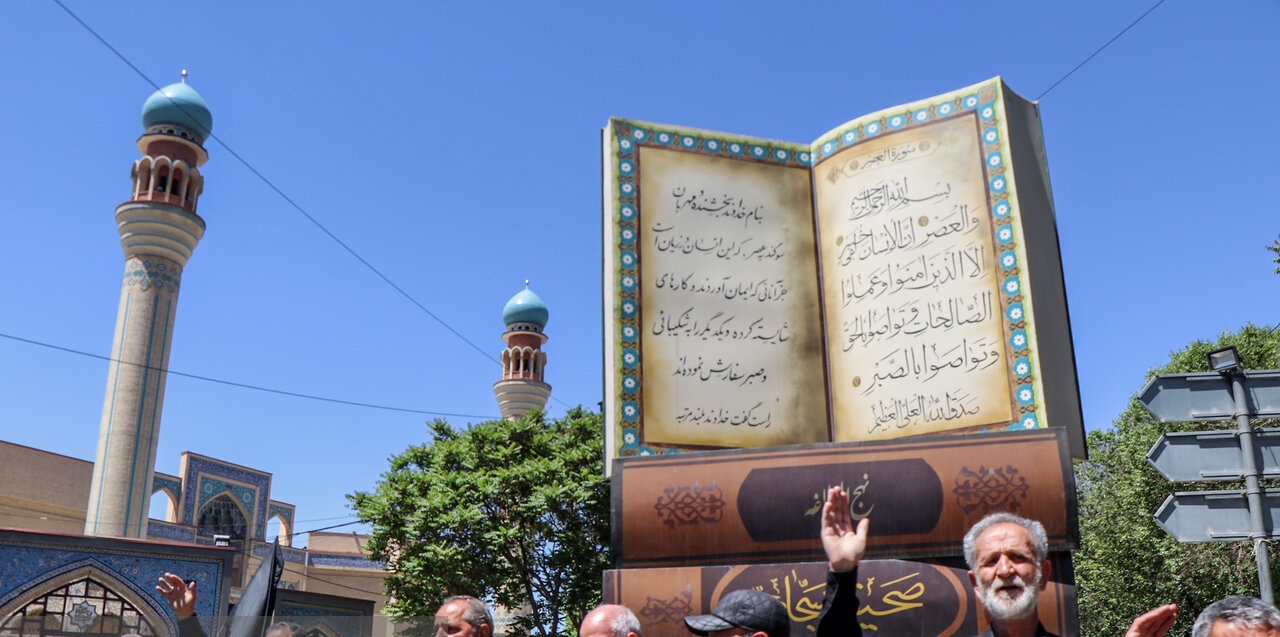 سورة العصر
بسم الله الرحمن الرحیم
والعصر ان الانسان لفی خسر
الا الذین امنوا و عملوا
الصالحات و تواصوا بالحق
و تواصوا بالصبر
صدق الله العلی العظیم
بنام خداوند بخشنده و مهربان
سوگند بعصر، که این انسان در زیان است
جز آنانی که ایمان آورده‌اند و کارهای
شایسته کرده و یکدیگر را به شکیبائی
و صبر سفارش نموده‌اند
راست گفت خداوند بلند مرتبه
نهج البلاغه
صحیفه سجادیه